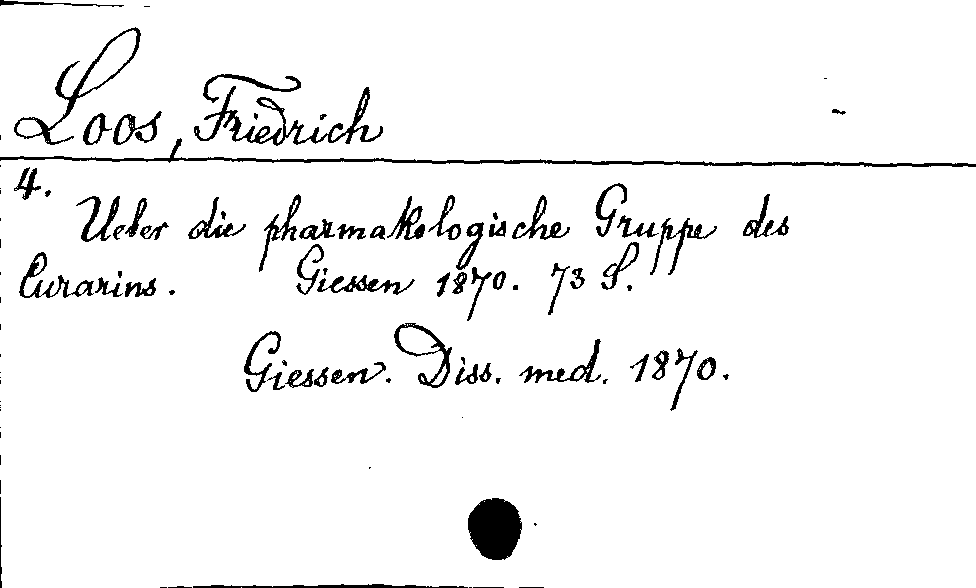 Loos, Friedrich
4.
Ueber die pharmakologische Gruppe des
Curarins. Giessen 1870. 73 S.
Giessen. Diss. med. 1870.